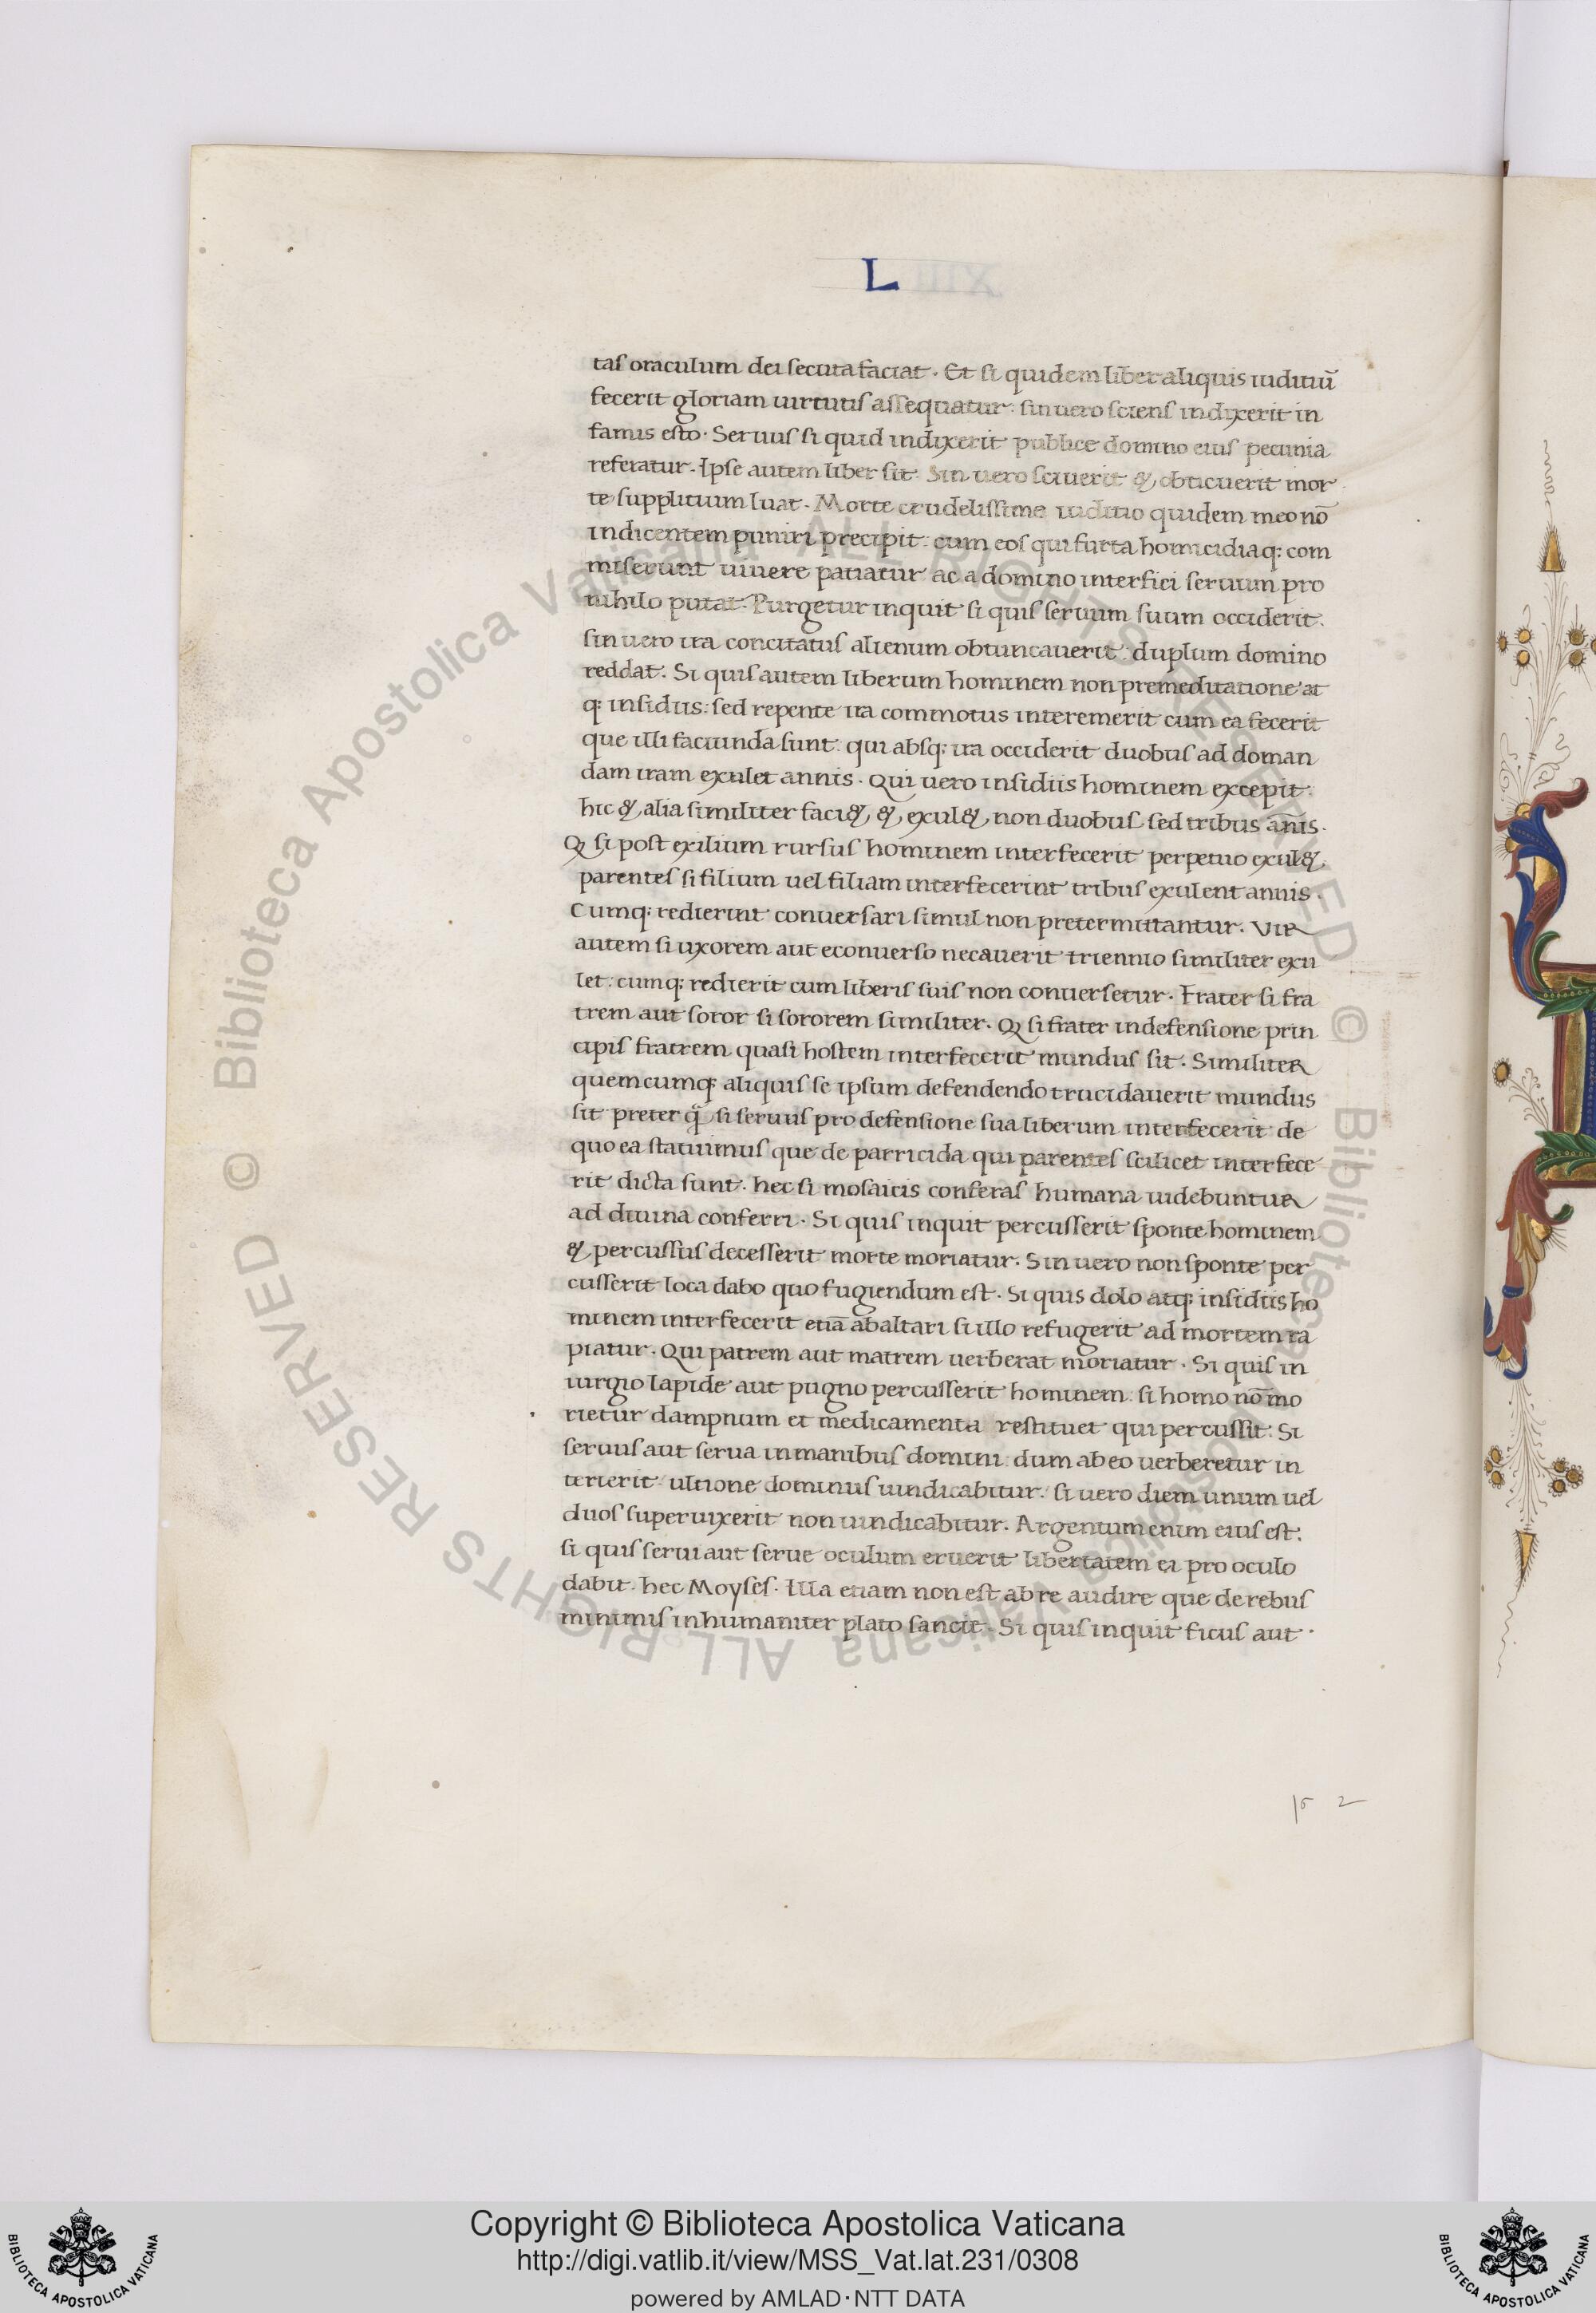 L
tas oraculum dei secuta faciat. Et si quidem liber aliquis iuditiū
fecerit gloriam uirtutis assequatur: sin uero sciens indixerit in
famis esto. Seruus si quid indixerit publice domino eius pecunia
referatur. Ipse autem liber sit. Sin uero sciuerit & obticuerit mor
te supplitium luat. Morte crudelissima iuditio quidem meo nō
indicentem puniri precipit: cum eos qui furta homicidiaq: com
miserunt uiuere patiatur ac a domino interfici seruum pro
nihilo putat. Purgetur inquit si quis seruum suum occiderit:
sin uero ira concitatus alienum obtuncauerit: duplum domino
reddat. Si quis autem liberum hominem non premeditatione at
q: insidiis: sed repente ira commotus interemerit cum ea fecerit
que illi faciunda sunt: qui absq: ira occiderit duobus ad doman
dam iram exulet annis. Qui uero insidiis hominem excepit:
hic & alia similiter faci& & exul& non duobus sed tribus ānis.
Q si post exilium rursus hominem interfecerit perpetuo exul&.
parentes si filium uel filiam interfecerint tribus exulent annis.
Cumq: redierint conuersari simul non pretermittantur. Vir
autem si uxorem aut econuerso necauerit triennio similiter exu
let: cumq: redierit cum liberis suis non conuersetur. Frater si fra
trem aut soror si sororem similiter. Q si frater in defensione prin
cipis fratrem quasi hostem interfecerit mundus sit. Similiter
quemcumq: aliquis se ipsum defendendo trucidauerit mundus
sit preter q̃ si seruus pro defensione sua liberum interfecerit de
quo ea statuimus que de parricida qui parentes scilicet interfece
rit dicta sunt. hec si mosaicis conferas humana uidebuntur
ad diuina conferri. Si quis inquit percusserit sponte hominem
& percussus decesserit morte moriatur. Sin uero non sponte per
cusserit loca dabo quo fugiendum est. Si quis dolo atq: insidiis ho
minem interfecerit etiā ab altari si illo refugerit ad mortem ra
piatur. Qui patrem aut matrem uerberat moriatur. Si quis in
iurgio lapide aut pugno percusserit hominem: si homo nō mo
rietur dampnum et medicamenta restituet qui percussit: Si
seruus aut serua in manibus domini: dum ab eo uerberetur in
terierit ultione dominus uindicabitur. si uero diem unum uel
duos superuixerit non uindicabitur. Argentum enim eius est:
si quis serui aut serue oculum eruerit libertatem ei pro oculo
dabit. hec Moyses. Illa etiam non est ab re audire que de rebus
minimis inhumaniter plato sancit. Si quis inquit ficus aut
Copyright © Biblioteca Apostolica Vaticana
http://digi.vatlib.it/view/MSS_Vat.lat.231/0308
powered by AMLAD·NTT DATA
BIBLIOTECA APOSTOLICA VATICANA
BIBLIOTECA APOSTOLICA VATICANA
© Biblioteca Apostolica Vaticana ALL RIGHTS RESERVED
© Biblioteca Apostolica Vaticana ALL RIGHTS RESERVED